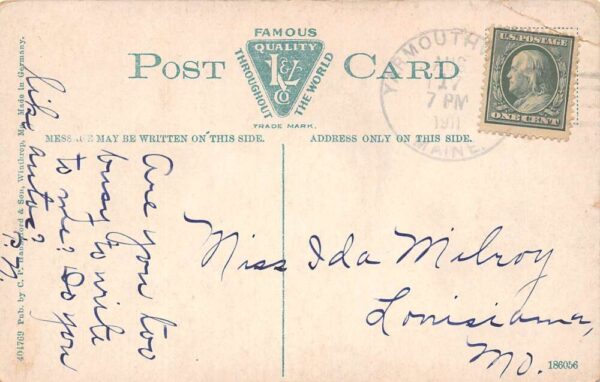 FAMOUS
QUALITY
THROUGHOUT
THE WORLD
TRADE MARK.
POST CARD
MESSAGE MAY BE WRITTEN ON THIS SIDE.
ADDRESS ONLY ON THIS SIDE.
YARMOUTHVILLE
17
7 PM
1911
MAINE.
U.S. POSTAGE
ONE CENT
Are you too
busy to write
to me? Do you
like autos?
Miss Ida Milroy
Louisiana,
Mo.
404769 Pub. by & Son, Winthrop, Me. Made in Germany.
186056